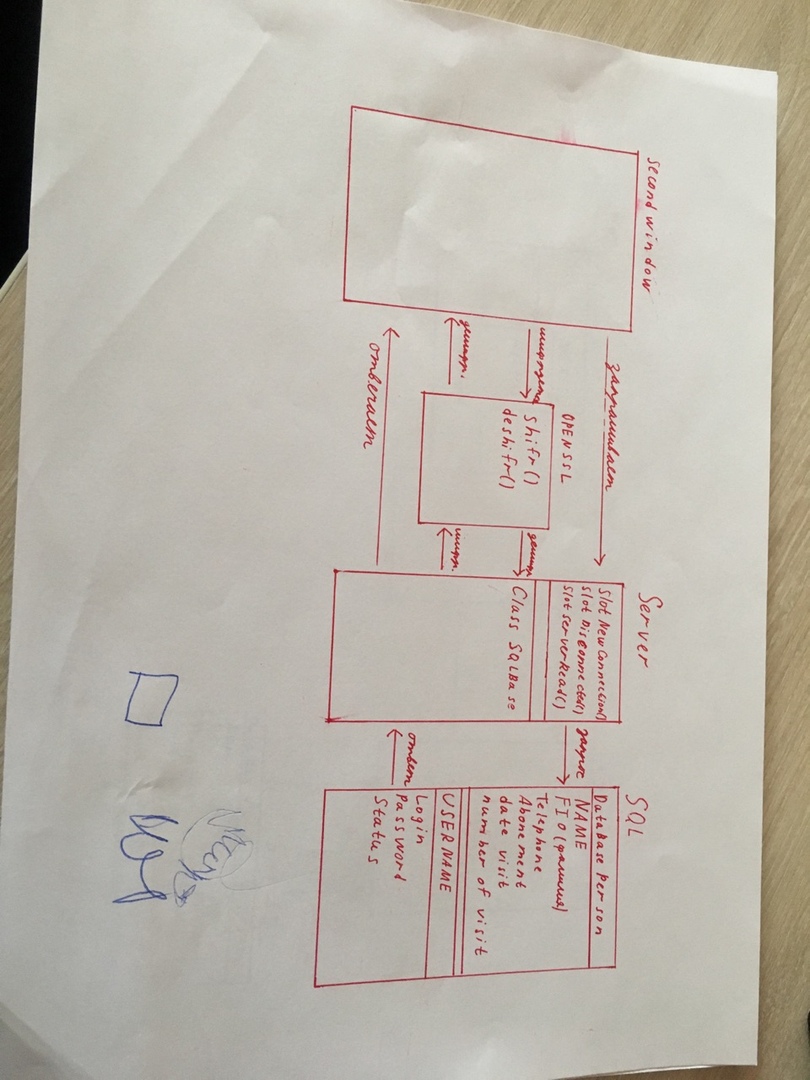 Second window
запрашивает
шифрует
дешифр.
отвечает
OPENSSL
Shifr()
deshifr()
дешифр
шифр.
Server
Slot New Connection()
Slot Disconnected()
Slot serverRead()
Class SQLBase
запрос
ответ
SQL
Database Person
NAME
FIO (фамилия)
Telephone
Abonement
date visit
number of visit
USERNAME
Login
Password
Status